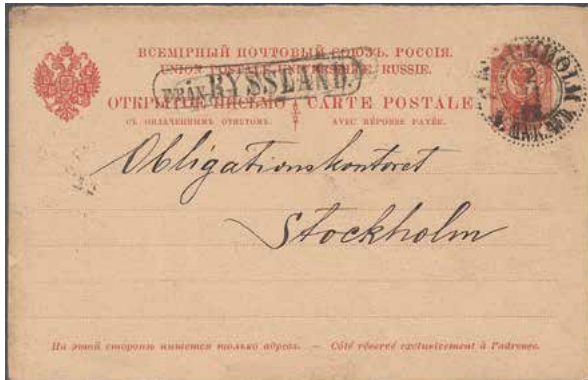 ВСЕМІРНЫЙ ПОЧТОВЫЙ СОЮЗЪ. РОССІЯ.
UNION POSTALE UNIVERSELLE. RUSSIE.
FRÅN RYSSLAND.
ОТКРЫТОЕ ПИСЬМО CARTE POSTALE
СЪ ОПЛАЧЕННЫМЪ ОТВѢТОМЪ. AVEC RÉPONSE PAYÉE.
STOCKHOLM
Obligationskontoret
Stockholm
На этой сторонѣ пишется только адресъ. — Côté réservé exclusivement à l'adresse.